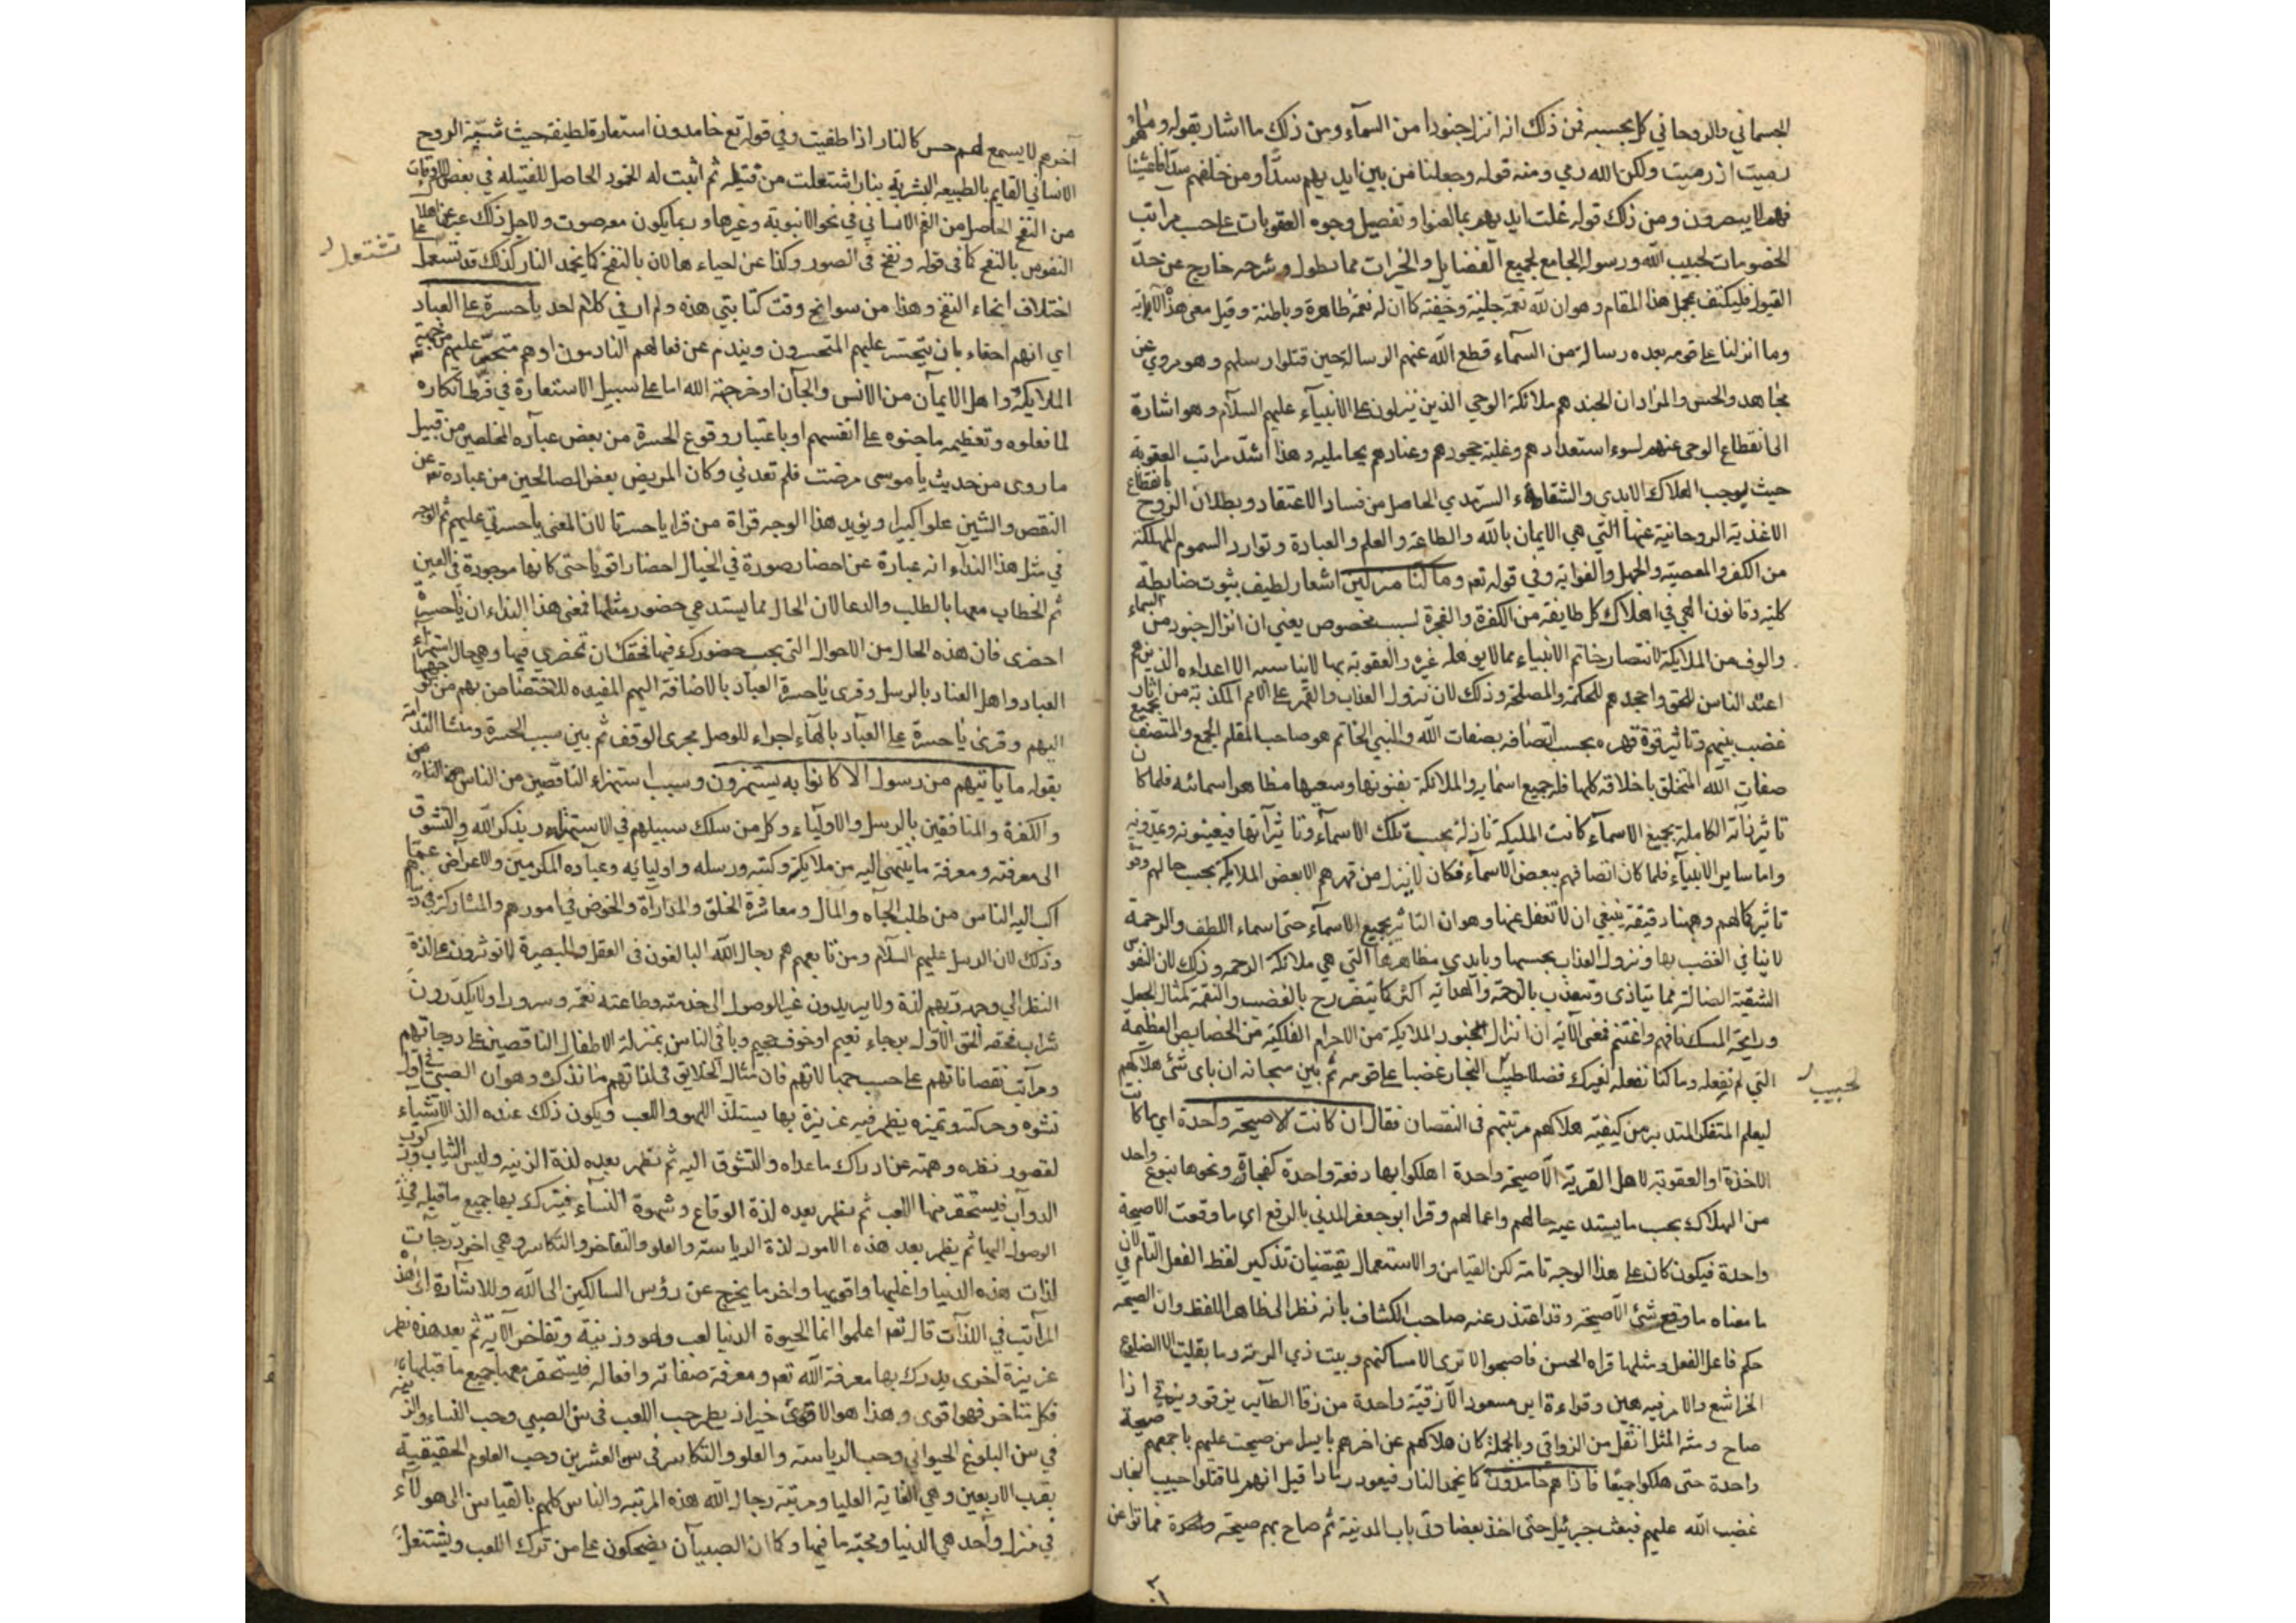 الجسماني والروحاني كل بحسبه فمن ذلك انه انزل جنودا من السمآء ومن ذلك ما اشار بقوله وما
رميت اذ رميت ولكن الله رمى ومنه قوله وجعلنا من بين ايديهم سدّا ومن خلفهم سدّا فاغشينا
فهم لا يبصرون ومن ذلك قوله غلت ايديهم بما لعنوا وتفصيل وجوه العقوبات على حسب مراتب
الخصومات لحبيب الله ورسوله الجامع لجميع الفضايل والخيرات مما يطول وشرحه خارج عن حدّ
القبول فليكتف بمجمل هذا المقام وهو ان لله نقمة جلية وخفية كما ان له نعمة ظاهرة وباطنة وقيل معنى هذه الآية
وما انزلنا على قومه بعده رسالة من السمآء قطع الله عنهم الرسالة حين قتلوا رسلهم وهو مروي عن
مجاهد والحسن والمراد ان الجند هم ملائكة الوحي الذين ينزلون على الانبيآء عليهم السلام وهو اشارة
الى انقطاع الوحي عنهم لسوء استعدادهم وغلبة جحودهم وعنادهم وهذا اشدّ مراتب العقوبة
حيث يوجب الهلاك الابدي والشقاء السرمدي الحاصل من فساد الاعتقاد وبطلان الروح بانقطاع
الاغذية الروحانية عنها التي هي الايمان بالله والطاعة والعلم والعبادة وتوارد السموم المهلكة
من الكفر والمعصية والجهل والغواية وفي قوله تعم وما كنا منزلين اشعار لطيف بثبوت ضابطة
كلية وقانون الهي في اهلاك كل طايفة من الكفرة والفجرة لسبب مخصوص يعني ان انزال جنود من السماء
والوف من الملايكة لانتصار خاتم الانبياء مما لا يوهله غيره والعقوبة بها لا يناسبه الا اعداءه الذين هم
اعند الناس للحق واجحدهم للحكمة والمصلحة وذلك لان نزول العذاب والقهر على الامم المكذبة من اثار
غضب نبيهم وتاثير قوة قهره بحسب اتصافه بصفات الله والنبي الخاتم هو صاحب المقام الجمع والمتصف بجميع
صفات الله المتخلق باخلاقه كلها فله جميع اسمايه والملائكة بفنونها وسعيها مظاهر اسمائه فلما كان
تاثير ذاته الكاملة بجميع الاسمآء كانت المليكة نازلة بحسب تلك الاسمآء وتاثيراتها فيعينونه
واما ساير الانبيآء فلما كان اتصافهم ببعض الاسمآء فكان لا ينزل من قهرهم الا بعض الملايكة بحسب حالهم
تاثير كمالهم وههنا دقيقة ينبغي ان لا تغفل عنها وهو ان التاثير بجميع الاسمآء حتى اسماء اللطف والرحمة
لا ينافي الغضب بها ونزول العذاب بحسبها وبايدي مظاهرها التي هي ملائكة الرحمة وذلك لان النفوس
الشقية الضالة مما يتاذى وتتعذب بالرحمة والهداية اكثر مما يتضرر بالغضب والنقمة كمثال الجعل
ورايحة المسك فافهم واغتنم فمعنى الآية ان انزال الجنود الملايكة من الاجرام الفلكية من الخصايص العظيمة
التي لم نفعله وما كنا نفعله لغيرك فضلا لحبيب النجار غضبا على قومه ثم بين سبحانه ان باي شئ هلاكهم
ليعلم المتفكر المتدبر من كيفية هلاكهم مرتبتهم في النقصان فقال ان كانت الا صيحة واحدة اي ما كانت
الاخذة او العقوبة لاهل القرية الا صيحة واحدة اهلكوا بها دفعة واحدة ونحوها بنوع واحد
من الهلاك بحسب ما يستدعيه حالهم واعمالهم وقرا ابو جعفر المدني بالرفع اي ما وقعت الا صيحة
واحدة فيكون كان على هذا الوجه تامة لكن القياس والاستعمال يقتضيان تذكير لفظ الفعل التام لان
ما معناه ما وقع شئ الا صيحة وقد اعتذر عنه صاحب الكشاف بانه نظر الى ظاهر اللفظ وان الصيحة في
حكم فاعل الفعل ومثلها قراه الحسن فاصبحوا لا ترى الا مساكنهم وبيت ذي الرمة وما بقيت الا الضلوع
الجراشع والامر فيه هين وقراءة ابن مسعود الا زقية واحدة من زقا الطاير يزقو ويزقي اذا
صاح ومنه المثل اثقل من الزواقي وبالجملة كان هلاكهم عن اخرهم بايسر امر صيحت عليهم باجمعهم صيحة
واحدة حتى هلكوا جميعا فاذا هم خامدون كما يخمد النار فيعود رمادا قيل انهم لما قتلوا حبيب النجار
غضب الله عليهم فبعث جبرئيل حتى اخذ بعضادتي باب المدينة ثم صاح بهم صيحة واحدة فماتوا عن
لحبيب
آخرهم لا يسمع لهم حس كالنار اذا طفيت وفي قوله تع خامدون استعارة لطيفة حيث شبّه الروح
الانساني القايم بالطبيعة البشرية بنار اشتعلت من فتيلة ثم اثبت له الخمود الحاصل للفتيلة في بعض الاوقات
من النفخ الحاصل من الفم الانساني في نحو الانبوبة وغيرها وربما يكون معه صوت ولاجل ذلك عبر عن اهلاك
النفوس بالنفخ كما في قوله ونفخ في الصور وكذا عن احياءها لان بالنفخ كما يخمد النار كذلك قد تشتعل على
تشتعل
اختلاف انحاء النفخ وهذا من سوانح وقت كتابتي هذه ولم ار في كلام احد يا حسرة على العباد
اي انهم احقاء بان يتحسر عليهم المتحسرون ويندم عن فعالهم النادمون او هم متحسر عليهم من جهة
الملايكة واهل الايمان من الانس والجآن او من جهة الله اما على سبيل الاستعارة في فرط انكاره
لما فعلوه وتعظيمه ما جنوه على انفسهم او باعتبار وقوع الحسرة من بعض عباده المخلصين من قبيل
ما روى من حديث يا موسى مرضت فلم تعدني وكان المريض بعض الصالحين من عباده تعم عن
النقص والشين علوا كبيرا ويؤيد هذا الوجه قراة من قرا يا حسرتا لان المعنى يا حسرتي عليهم ثم الوجه
في مثل هذا النداء انه عبارة عن احضار صورة في الخيال احضارا قويا حتى كانها موجودة في العين
ثم الخطاب معها بالطلب والدعا لان الحال مما يستدعي حضور مثلها فمعنى هذا النداء ان يا حسرة
احضرى فان هذه الحال من الاحوال التى يجب حضورك فيها فحقك ان تحضري فيها وهي حال استهزاء
العباد واهل العناد بالرسل وقرى يا حسرة العباد بالاضافة اليهم المفيده للاختصاص بهم من
اليهم وقرئ يا حسرة على العباد بالهاء اجراء للوصل مجرى الوقف ثم بين سبب الحسرة ومنشا الندامة
بقوله ما ياتيهم من رسول الا كانوا به يستهزون وسبب استهزاء الناقصين من الناس
والكفرة والمنافقين بالرسل والاوليآء وكل من سلك سبيلهم في الاستهتار بذكر الله والتشوق
الى معرفته ومعرفة ما ينتهى اليه من ملايكته وكتبه ورسله واوليايه وعباده المكرمين والاعراض عما
اكب اليه الناس من طلب الجاه والمال ومعاشرة الخلق والمداراة والخوض في امورهم والمشاركة
وذلك لان الرسل عليهم السلام ومن تابعهم هم رجال الله البالغون فى العقل والبصيرة لا توثرون على لذة
النظر الى وجه ربهم لذة ولا يريدون غير الوصول الى خدمته وطاعته نعمة وسرورا ولا يكدّرون
شراب محبة الحق الاول برجاء نعيم او خوف جحيم وباقي الناس بمنزلة الاطفال الناقصين على درجاتهم
ومراتب نقصاناتهم على حسب جهالاتهم فان مثال الخلايق في لذاتهم ما نذكره وهو ان الصبي في اول
نشوه وحركته وتميزه يظهر فيه غريزة بها يستلذ اللهو واللعب ويكون ذلك عنده الذ الاشياء
لقصور نظره وهمته عن ادراك ما عداه والتشوق اليه ثم يظهر بعده لذة الزينة ولبس الثياب وركوب
الدواب فيستحقر منها اللعب ثم يظهر بعده لذة الوقاع وشهوة النسآء فيترك بها جميع ما قبله في
الوصول اليها ثم يظهر بعد هذه الامور لذة الرياسة والعلو والتفاخر والتكاثر وهي اخر درجات
لذات هذه الدنيا واغلبها واقويها واخر ما يخرج عن رؤس السالكين الى الله وللاشارة الى هذه
المراتب في اللذات قال تعم اعلموا انما الحيوة الدنيا لعب ولهو وزينة وتفاخر الآية ثم بعد هذه يظهر
غريزة اخرى يدرك بها معرفة الله تعم ومعرفة صفاته وافعاله فيستحقر معها جميع ما قبلها
فكل متاخر فهو اقوى وهذا هو الاقوى خيرا اذ يظهر حب اللعب فى سن الصبي وحب النساء والزينة
في سن البلوغ الحيواني وحب الرياسة والعلو والتكاثر في سن العشرين وحب العلوم الحقيقية
بقرب الاربعين وهي الغاية العليا ومرتبة رجال الله هذه المرتبة والناس كلهم بالقياس الى هولآء
في منزل واحد هي الدنيا ومحبة ما فيها وكما ان الصبيان يضحكون على من ترك اللعب ويشتغل